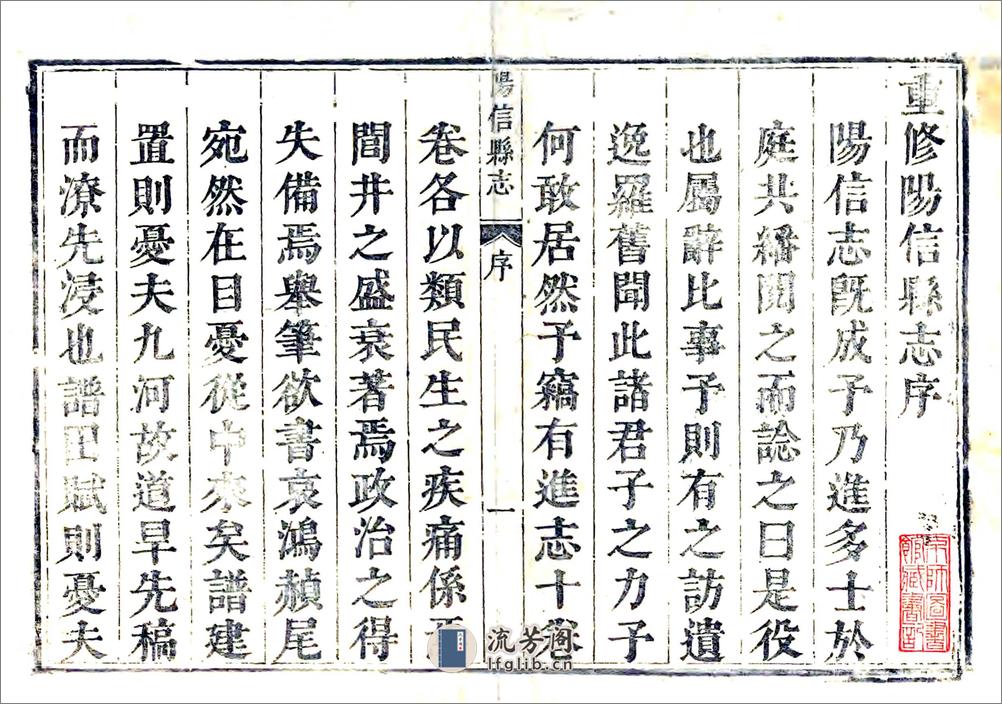 重修陽信縣志序
陽信志既成予乃進多士於
庭共繙閱之而諗之曰是役
也屬辭比事予則有之訪遺
逸羅舊聞此諸君子之力予
何敢居然予竊有進志十
陽信縣志 序 一
卷各以類民生之疾痛係
閭井之盛衰著焉政治之得
失備焉舉筆欲書哀鴻赬尾
宛然在目憂從中來矣譜建
置則憂夫九河故道旱先稿
而潦先浸也譜田賦則憂夫
流芳阁
lfglib.cn